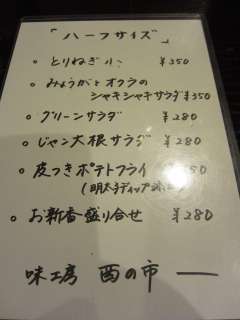 「ハーフサイズ」
。とりねぎ小 ¥350
。みょうがとオクラの
シャキシャキサラダ ¥350
。グリーンサラダ ¥280
。じゃン大根サラダ ¥280
。皮つきポテトフライ 50
(明太子ディップ
。お新香盛り合せ ¥280
味工房 酉の市